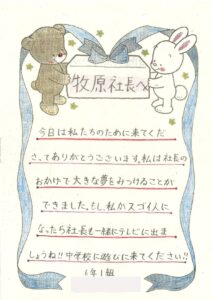 牧原社長へ
今日は私たちのために来てくだ
さってありがとうございます。私は社長の
おかげで大きな夢をみつけることが
できました。もし、私がスゴイ人に
なったら社長も一緒にテレビに出ま
しょうね!!中学校に遊びに来てください!!
6年1組